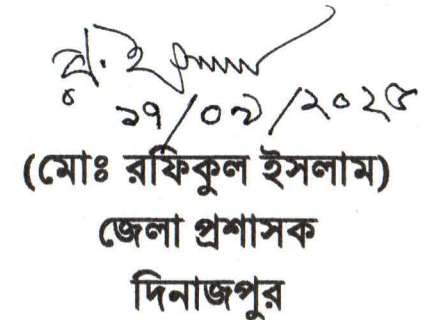 ১৭/০৯/২০২৫
(মোঃ রফিকুল ইসলাম)
জেলা প্রশাসক
দিনাজপুর